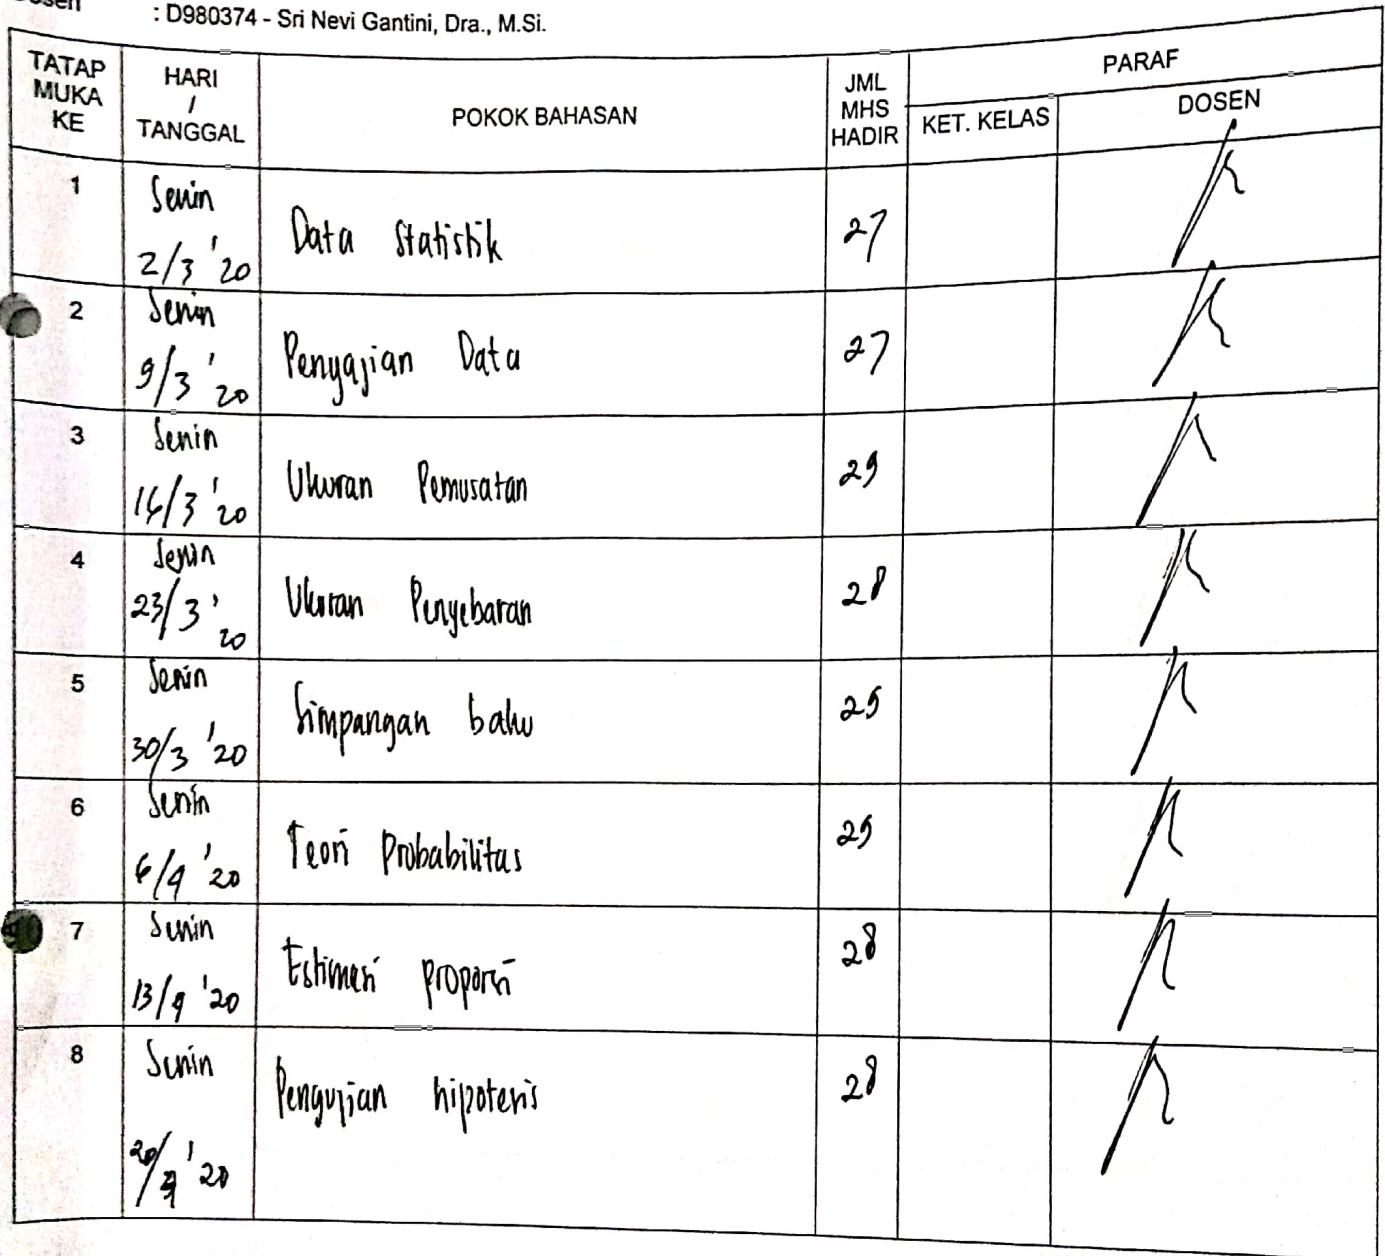 : D980374 - Sri Nevi Gantini, Dra., M.Si.
TATAP MUKA KE
HARI / TANGGAL
POKOK BAHASAN
JML MHS HADIR
PARAF
KET. KELAS
DOSEN
1
Senin
2/3 '20
Data Statistik
27
2
Senin
9/3 '20
Penyajian Data
27
3
Senin
16/3 '20
Ukuran Pemusatan
29
4
Senin
23/3 '20
Ukuran Penyebaran
28
5
Senin
30/3 '20
Simpangan baku
6
Senin
6/4 '20
Teori Probabilitas
7
Senin
13/4 '20
Estimasi proporsi
28
8
Senin
20/4 '20
Pengujian hipotesis
28